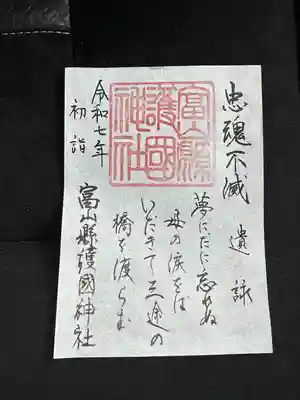 忠魂不滅
遺詠
夢にだに忘れぬ
母の涙をば
いだきて三途の
橋を渡らむ
富山縣護國神社
富山縣護國神社
令和七年
初詣